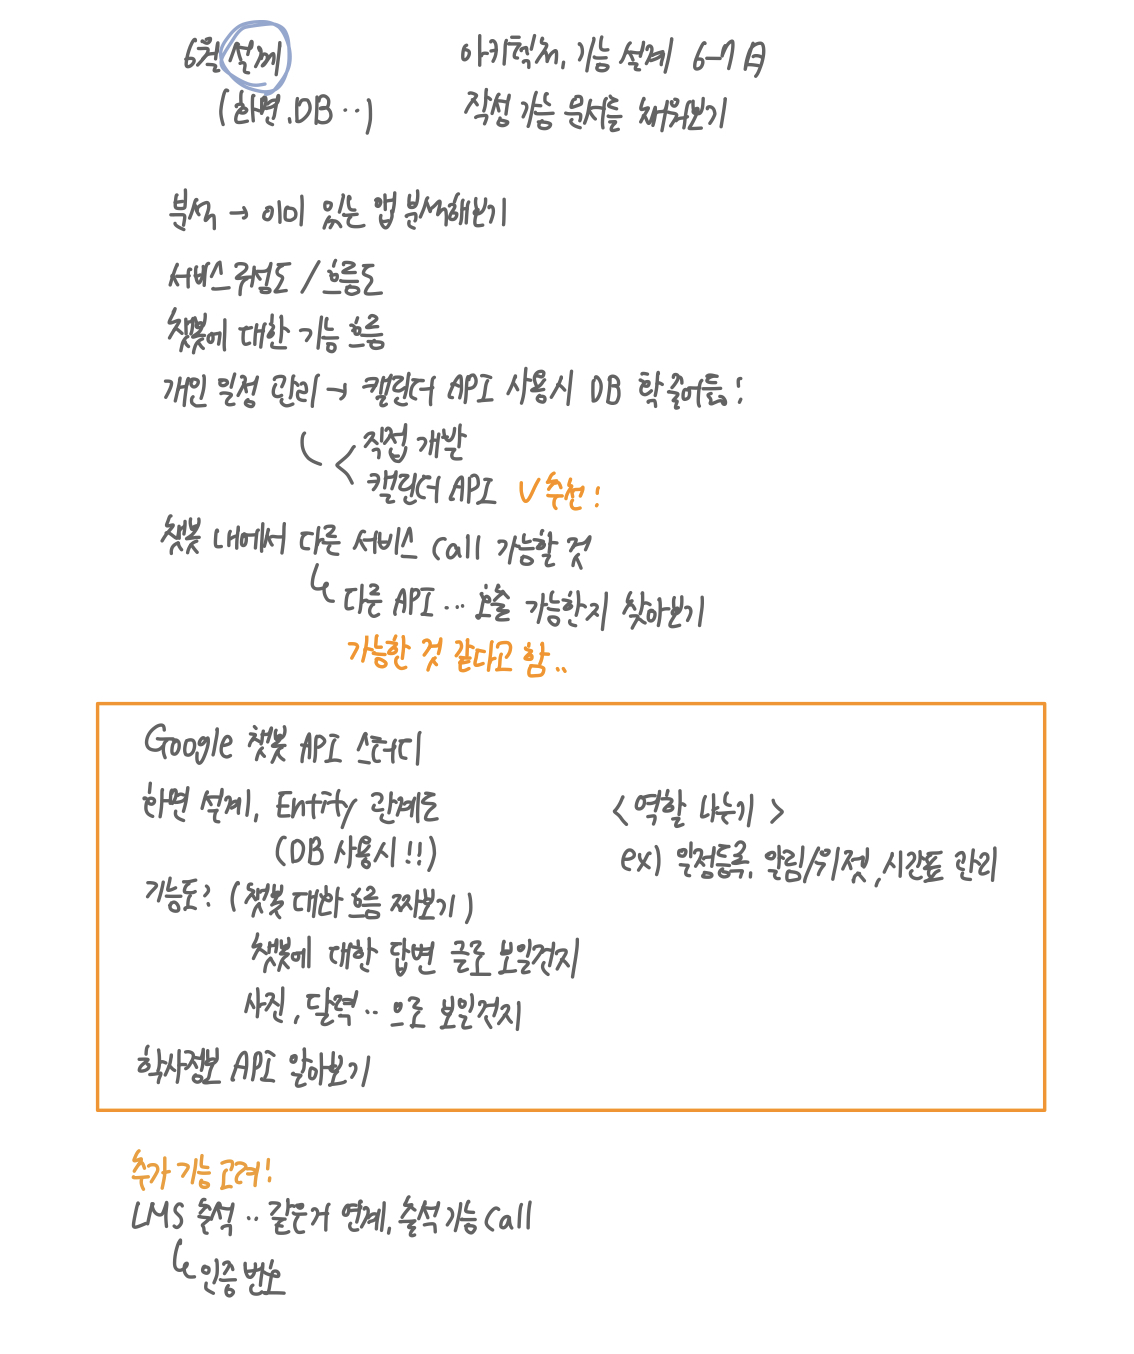 6월 설계
(화면, DB ..)
아키텍처, 기능 설계 6-7月
작성 가능 문서를 채워보기
분석 → 이미 있는 앱 분석해보기
서비스 구성도 / 흐름도
챗봇에 대한 기능 흐름
개인 일정 관리 → 캘린더 API 사용시 DB 확 줄어듦!
직접 개발
캘린더 API ✓추천!
챗봇 내에서 다른 서비스 call 가능할 것
↳ 다른 API ... 호출 가능한지 찾아보기
가능한 것 같다고 함..
Google 챗봇 API 스터디
화면 설계, Entity 관계도
(DB 사용시!!)
<역할 나누기>
ex) 일정등록, 알림/위젯, 시간표 관리
기능도? (챗봇 대화 흐름 짜보기)
챗봇에 대한 답변 글로 보일건지
사진, 달력.. 으로 보일건지
학사정보 API 알아보기
추가 기능 고려!
LMS 출석 .. 같은거 연계, 출석 기능 call
↳ 인증 번호